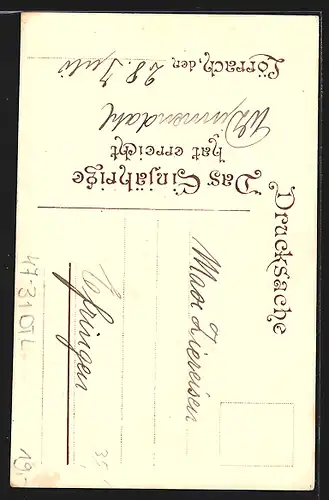 Drucksache
Das Einjährige
hat erreicht
W. Dimmendahl
Lörrach, den 28. Juli
Max Ziereisen
Efringen
35.
4731012
19.-